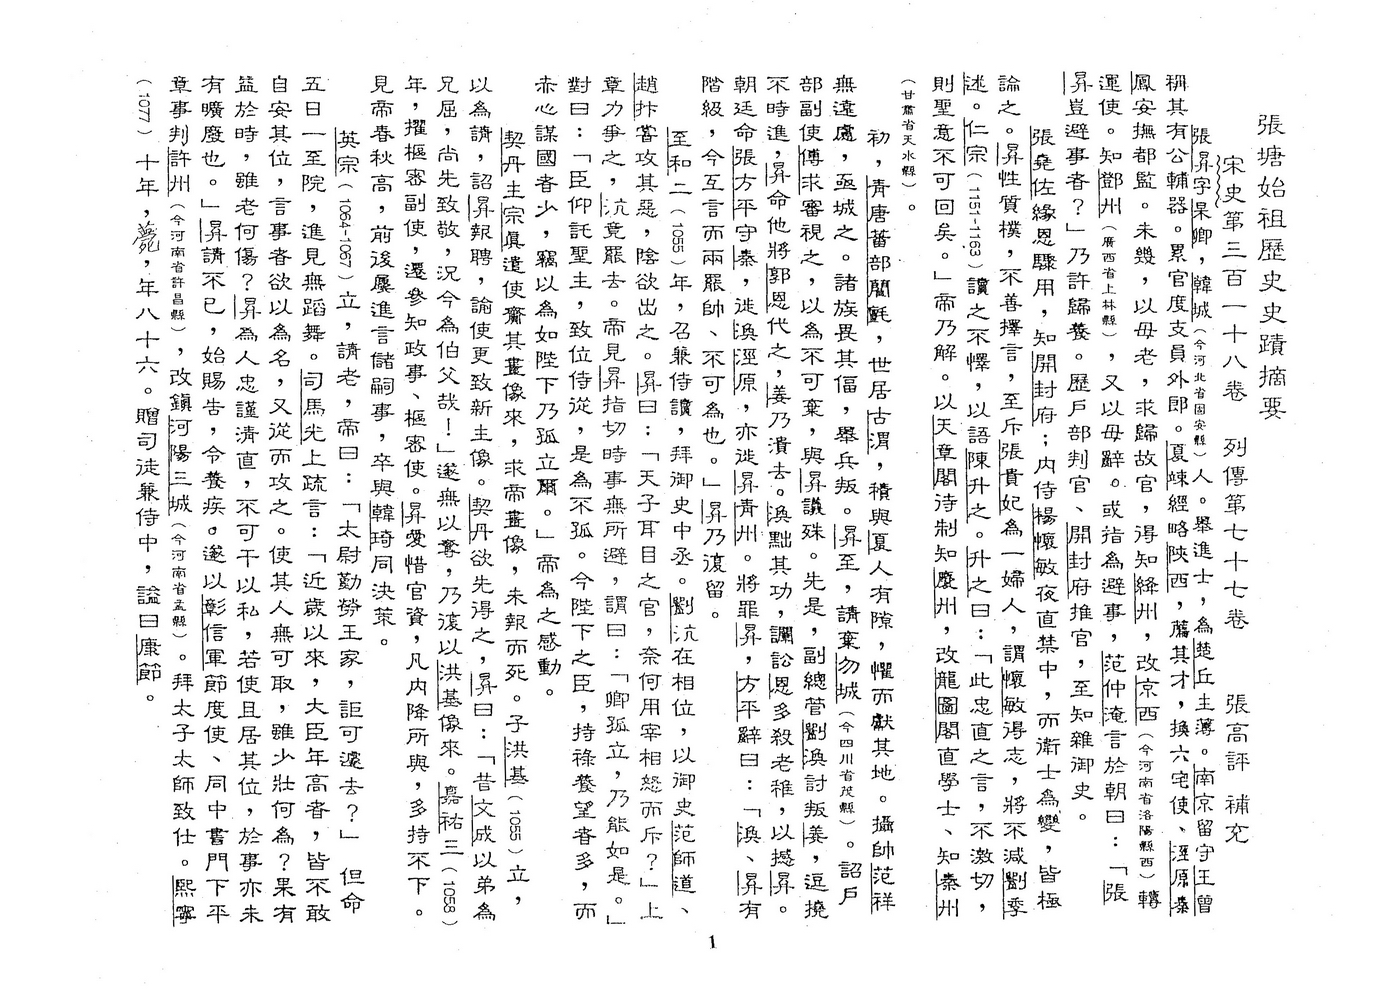 張塘始祖歷史史蹟摘要
宋史第三百一十八卷　列傳第七十七卷　張高評　補充
張昇字杲卿，韓城（今河北省固安縣）人。舉進士，為楚丘主簿。南京留守王曾
稱其有公輔器。累官度支員外郎。夏竦經略陝西，薦其才，換六宅使、涇原秦
鳳安撫都監。未幾，以母老，求歸故官，得知絳州，改京西（今河南省洛陽縣西）轉
運使。知鄧州（廣西省上林縣），又以母辭。或指為避事，范仲淹言於朝曰：「張
昇豈避事者？」乃許歸養。歷戶部判官、開封府推官，至知雜御史。
張堯佐緣恩驟用，知開封府；內侍楊懷敏夜直禁中，而衛士為變，皆極
論之。昇性質樸，不善擇言，至斥張貴妃為一婦人，謂懷敏得志，將不減劉季
述。仁宗（1151-1163）讀之不懌，以語陳升之。升之曰：「此忠直之言，不激切，
則聖意不可回矣。」帝乃解。以天章閣待制知慶州，改龍圖閣直學士、知秦州
（甘肅省天水縣）。
初，青唐蕃部藺氈，世居古渭，積與夏人有隙，懼而獻其地。攝帥范祥
無遠慮，亟城之。諸族畏其偪，舉兵叛。昇至，請棄勿城（今四川省茂縣）。詔戶
部副使傅求審視之，以為不可棄，與昇議殊。先是，副總管劉渙討叛羌，逗撓
不時進，昇命他將郭恩代之，羌乃潰去。渙黜其功，讕訟恩多殺老稚，以撼昇。
朝廷命張方平守秦，徙渙涇原，亦徙昇青州。將罪昇，方平辭曰：「渙、昇有
階級，今互言而兩罷帥、不可為也。」昇乃復留。
至和二（1055）年，召兼侍讀，拜御史中丞。劉沆在相位，以御史范師道、
趙抃嘗攻其惡，陰欲出之。昇曰：「天子耳目之官，奈何用宰相怒而斥？」上
章力爭之，沆竟罷去。帝見昇指切時事無所避，謂曰：「卿孤立，乃能如是。」
對曰：「臣仰託聖主，致位侍從，是為不孤。今陛下之臣，持祿養望者多，而
赤心謀國者少，竊以為如陛下乃孤立爾。」帝為之感動。
契丹主宗真遣使齎其畫像來，求帝畫像，未報而死。子洪基（1055）立，
以為請，詔昇報聘，諭使更致新主像。契丹欲先得之，昇曰：「昔文成以弟為
兄屈，尚先致敬，況今為伯父哉！」遂無以奪，乃復以洪基像來。嘉祐三（1058）
年，擢樞密副使，遷參知政事、樞密使。昇愛惜官資，凡內降所與，多持不下。
見帝春秋高，前後屢進言儲嗣事，卒與韓琦同決策。
英宗（1064-1067）立，請老，帝曰：「太尉勤勞王家，詎可遽去？」　但命
五日一至院，進見無蹈舞。司馬光上疏言：「近歲以來，大臣年高者，皆不敢
自安其位，言事者欲以為名，又從而攻之。使其人無可取，雖少壯何為？果有
益於時，雖老何傷？昇為人忠謹清直，不可干以私，若使且居其位，於事亦未
有曠廢也。」昇請不已，始賜告，令養疾。遂以彰信軍節度使、同中書門下平
章事判許州（今河南省許昌縣），改鎮河陽三城（今河南省孟縣）。拜太子太師致仕。熙寧
（1077）十年，薨，年八十六。贈司徒兼侍中，諡曰康節。
1